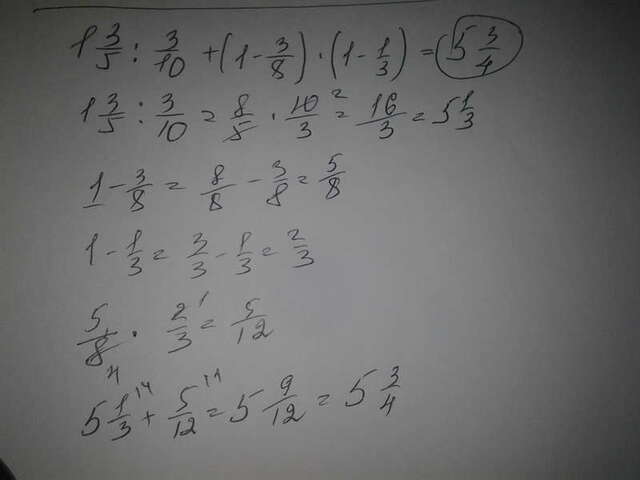 1 3/5 : 3/10 + (1 - 3/8) · (1 - 1/3) = 5 3/4
1 3/5 : 3/10 = 8/5 · 10/3 2 = 16/3 = 5 1/3
1 - 3/8 = 8/8 - 3/8 = 5/8
1 - 1/3 = 3/3 - 1/3 = 2/3
5/8 4 · 2/3 1 = 5/12
5 1/3 \4 + 5/12 \1 = 5 9/12 = 5 3/4